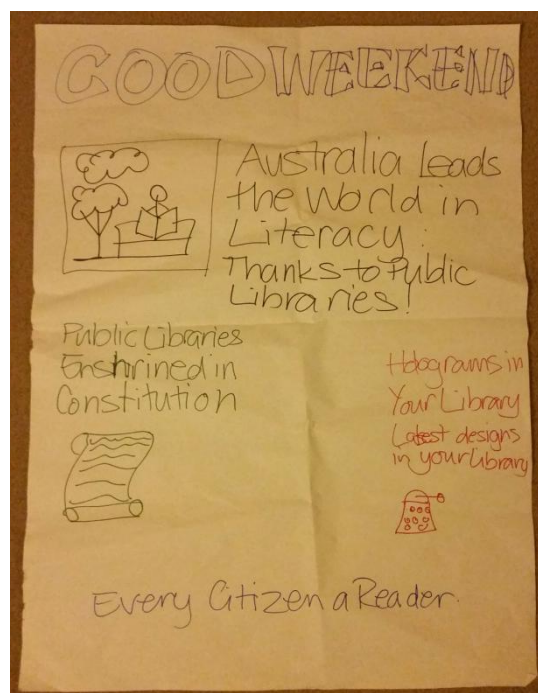 GOOD WEEKEND
Australia Leads
the World in
Literacy:
Thanks to Public
Libraries!
Public Libraries
Enshrined in
Constitution
Holograms in
Your Library
Latest designs
in your library
Every Citizen a Reader.